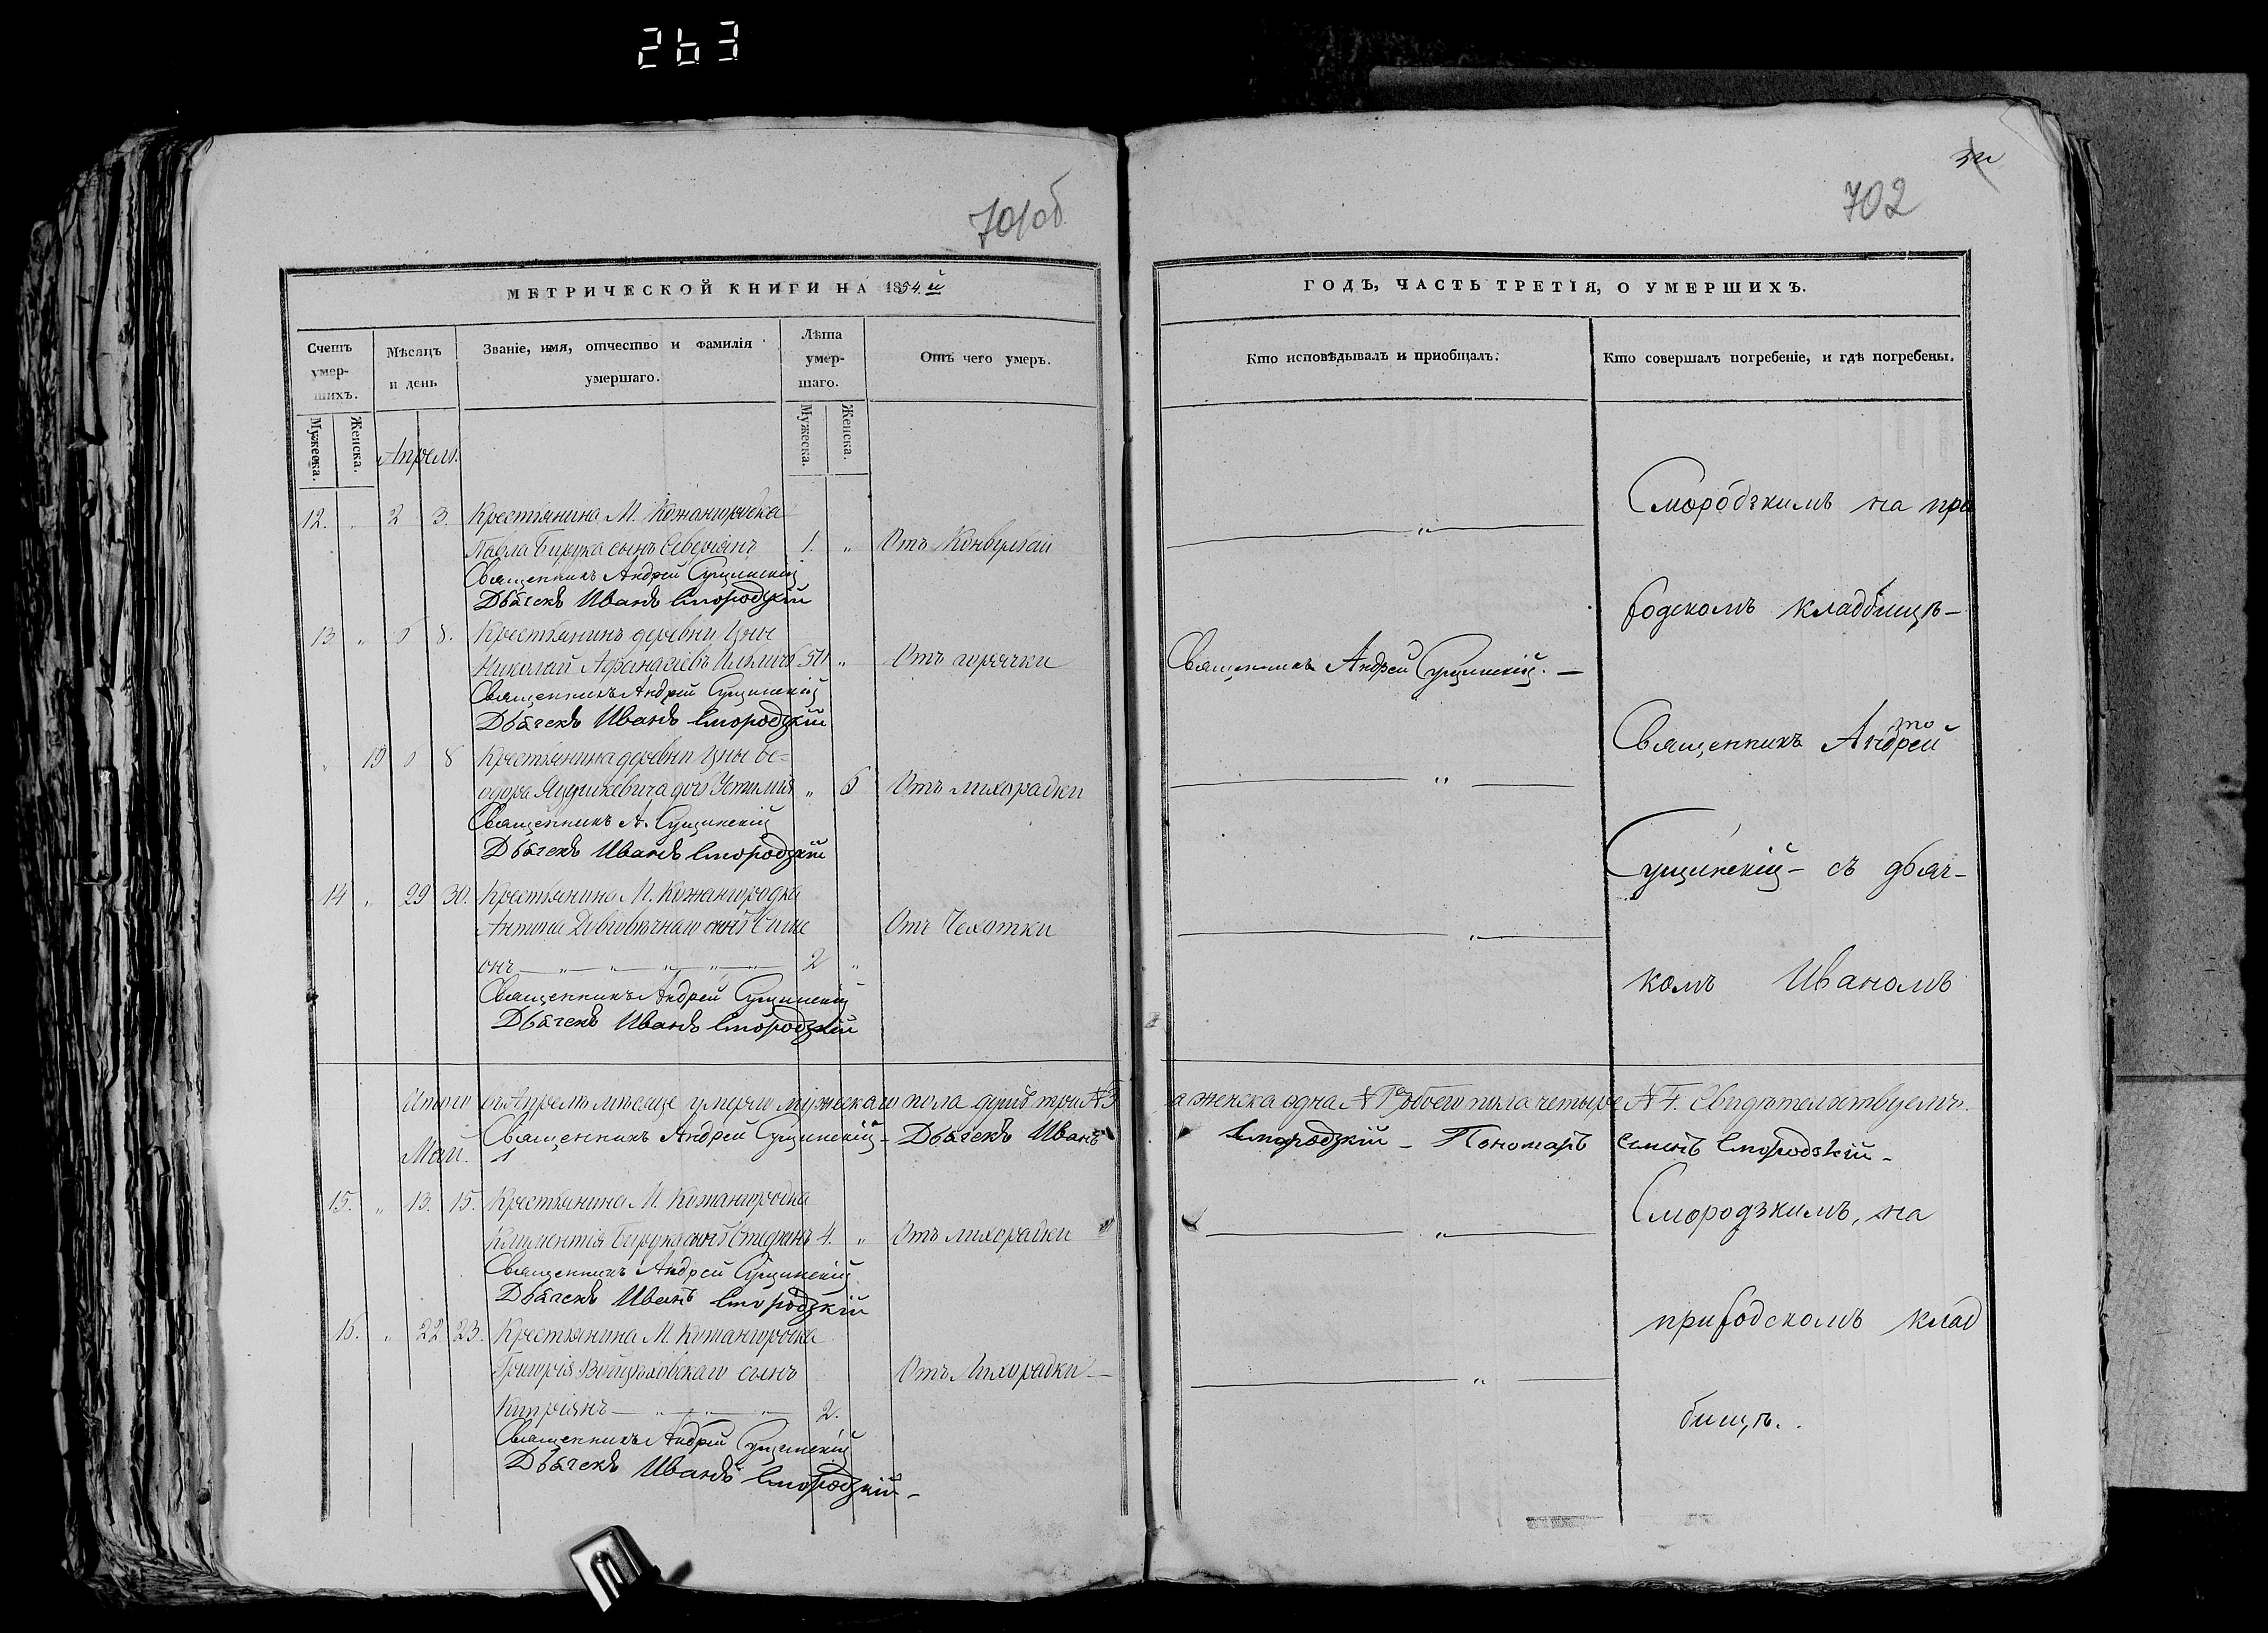 263
701об
МЕТРИЧЕСКОЙ КНИГИ НА 1854.й
Счетъ умер-шихъ.
Мѣсяцъ и день
Званіе, имя, отчество и фамилія умершаго.
Лѣта умер-шаго.
Отъ чего умеръ.
Мужеска.
Женска.
Мужеска.
Женска.
Апрель.
12. „ 2 3. Крестьянина М. Кожангородка
Павла Бирука сынъ Северіянъ 1. „ Отъ Конвульсіи
Священникъ Андрей Сущинскій
Дьячекъ Иванъ Смородзкій
13 „ 6 8. Крестьянинъ деревни Цны
Николай Афанасіевъ 50 „ Отъ горячки
Священникъ Андрей Сущинскій
Дьячекъ Иванъ Смородзкій
„ 8 Крестьянина деревни Цны Ѳе-
одора Яцушкевича дочь Устинья „ 6 Отъ лихорадки
Священникъ А. Сущинскій
Дьячекъ Иванъ Смородзкій
14 „ 29 30. Крестьянина М. Кожангородка
Антона Довговѣчнаго сынъ Симе
онъ — „ — „ — „ — „ — 2 „ Отъ Чехотки
Священникъ Андрей Сущинскій
Дьячекъ Иванъ Смородзкій
Итого въ Апрелѣ мѣсяце умерло мужескаго пола душъ три №3
Священникъ Андрей Сущинскій - Дьячекъ Иванъ
Май.
15. „ 13. 15. Крестьянина М. Кожангородка
Климентія Бирука сынъ Стефанъ 4. „ Отъ лихорадки
Священникъ Андрей Сущинскій
Дьячекъ Иванъ Смородзкій
16. „ 22 23. Крестьянина М. Кожангородка
Григорія Войцѣховскаго сынъ Отъ Лихорадки —
Кипріянъ — „ — „ — „ — 2.
Священникъ Андрей Сущинскій
Дьячекъ Иванъ Смородзкій -
702
ГОДЪ, ЧАСТЬ ТРЕТІЯ, О УМЕРШИХЪ.
Кто исповѣдывалъ и пріобщалъ.
Кто совершалъ погребеніе, и гдѣ погребены.
Смородзкимъ на при
ходскомъ кладбищѣ —
Священникъ Андрей Сущинскій. —
Священникъ Андрей
Сущинскій - съ дьяч-
комъ Иваномъ
а женска одна № 1 обоего пола четыре № 4. Свидѣтельствуемъ.
Смородзкій - Пономарь Семенъ Смородзкій -
Смородзкимъ, на
приходскомъ клад
бищѣ..